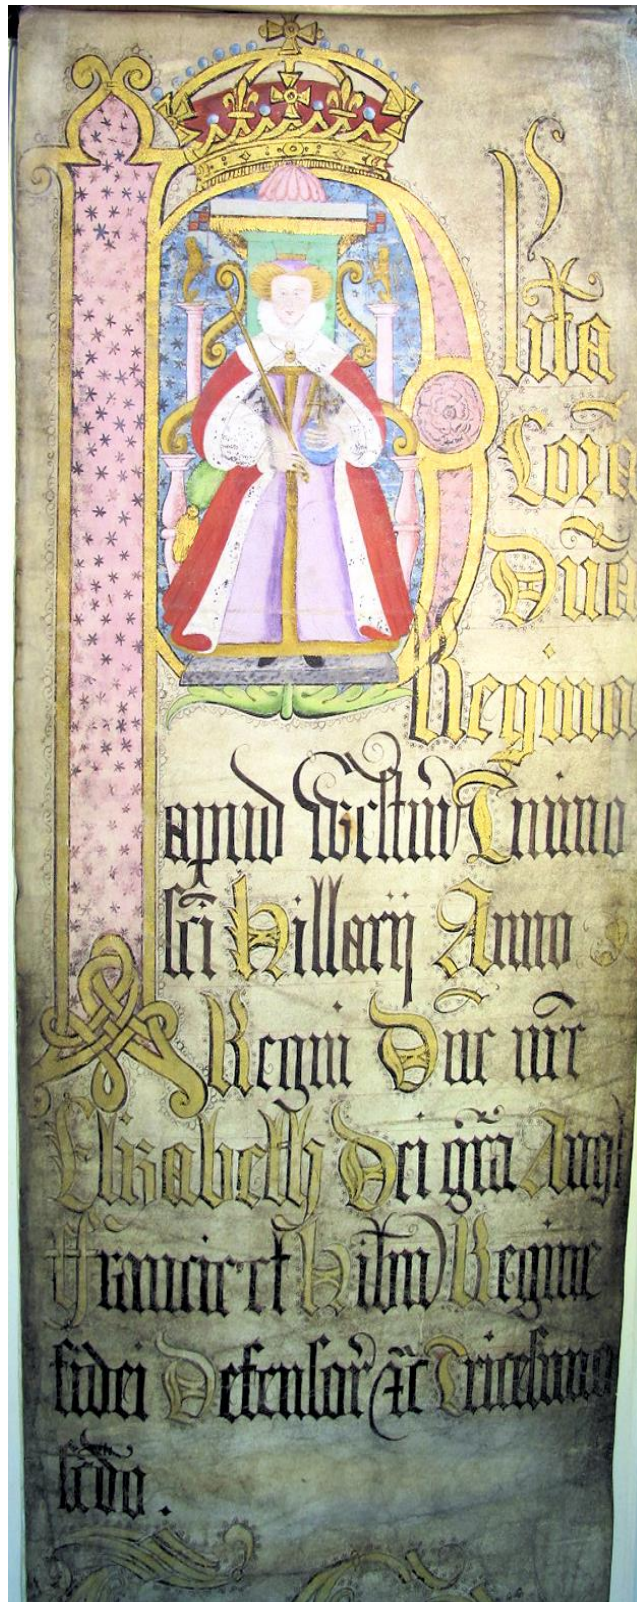 Pl̃ita
Corã
Dñã
Regina
apud Westm̃ Tr̃mino
sc̃i Hillarij Anno
Regni Dñe nr̃e
Elizabeth Dei gr̃a Angl
Francie et Hib̃n Regine
fidei Defensor̃ &c̃ Tricesimo
sc̃do.